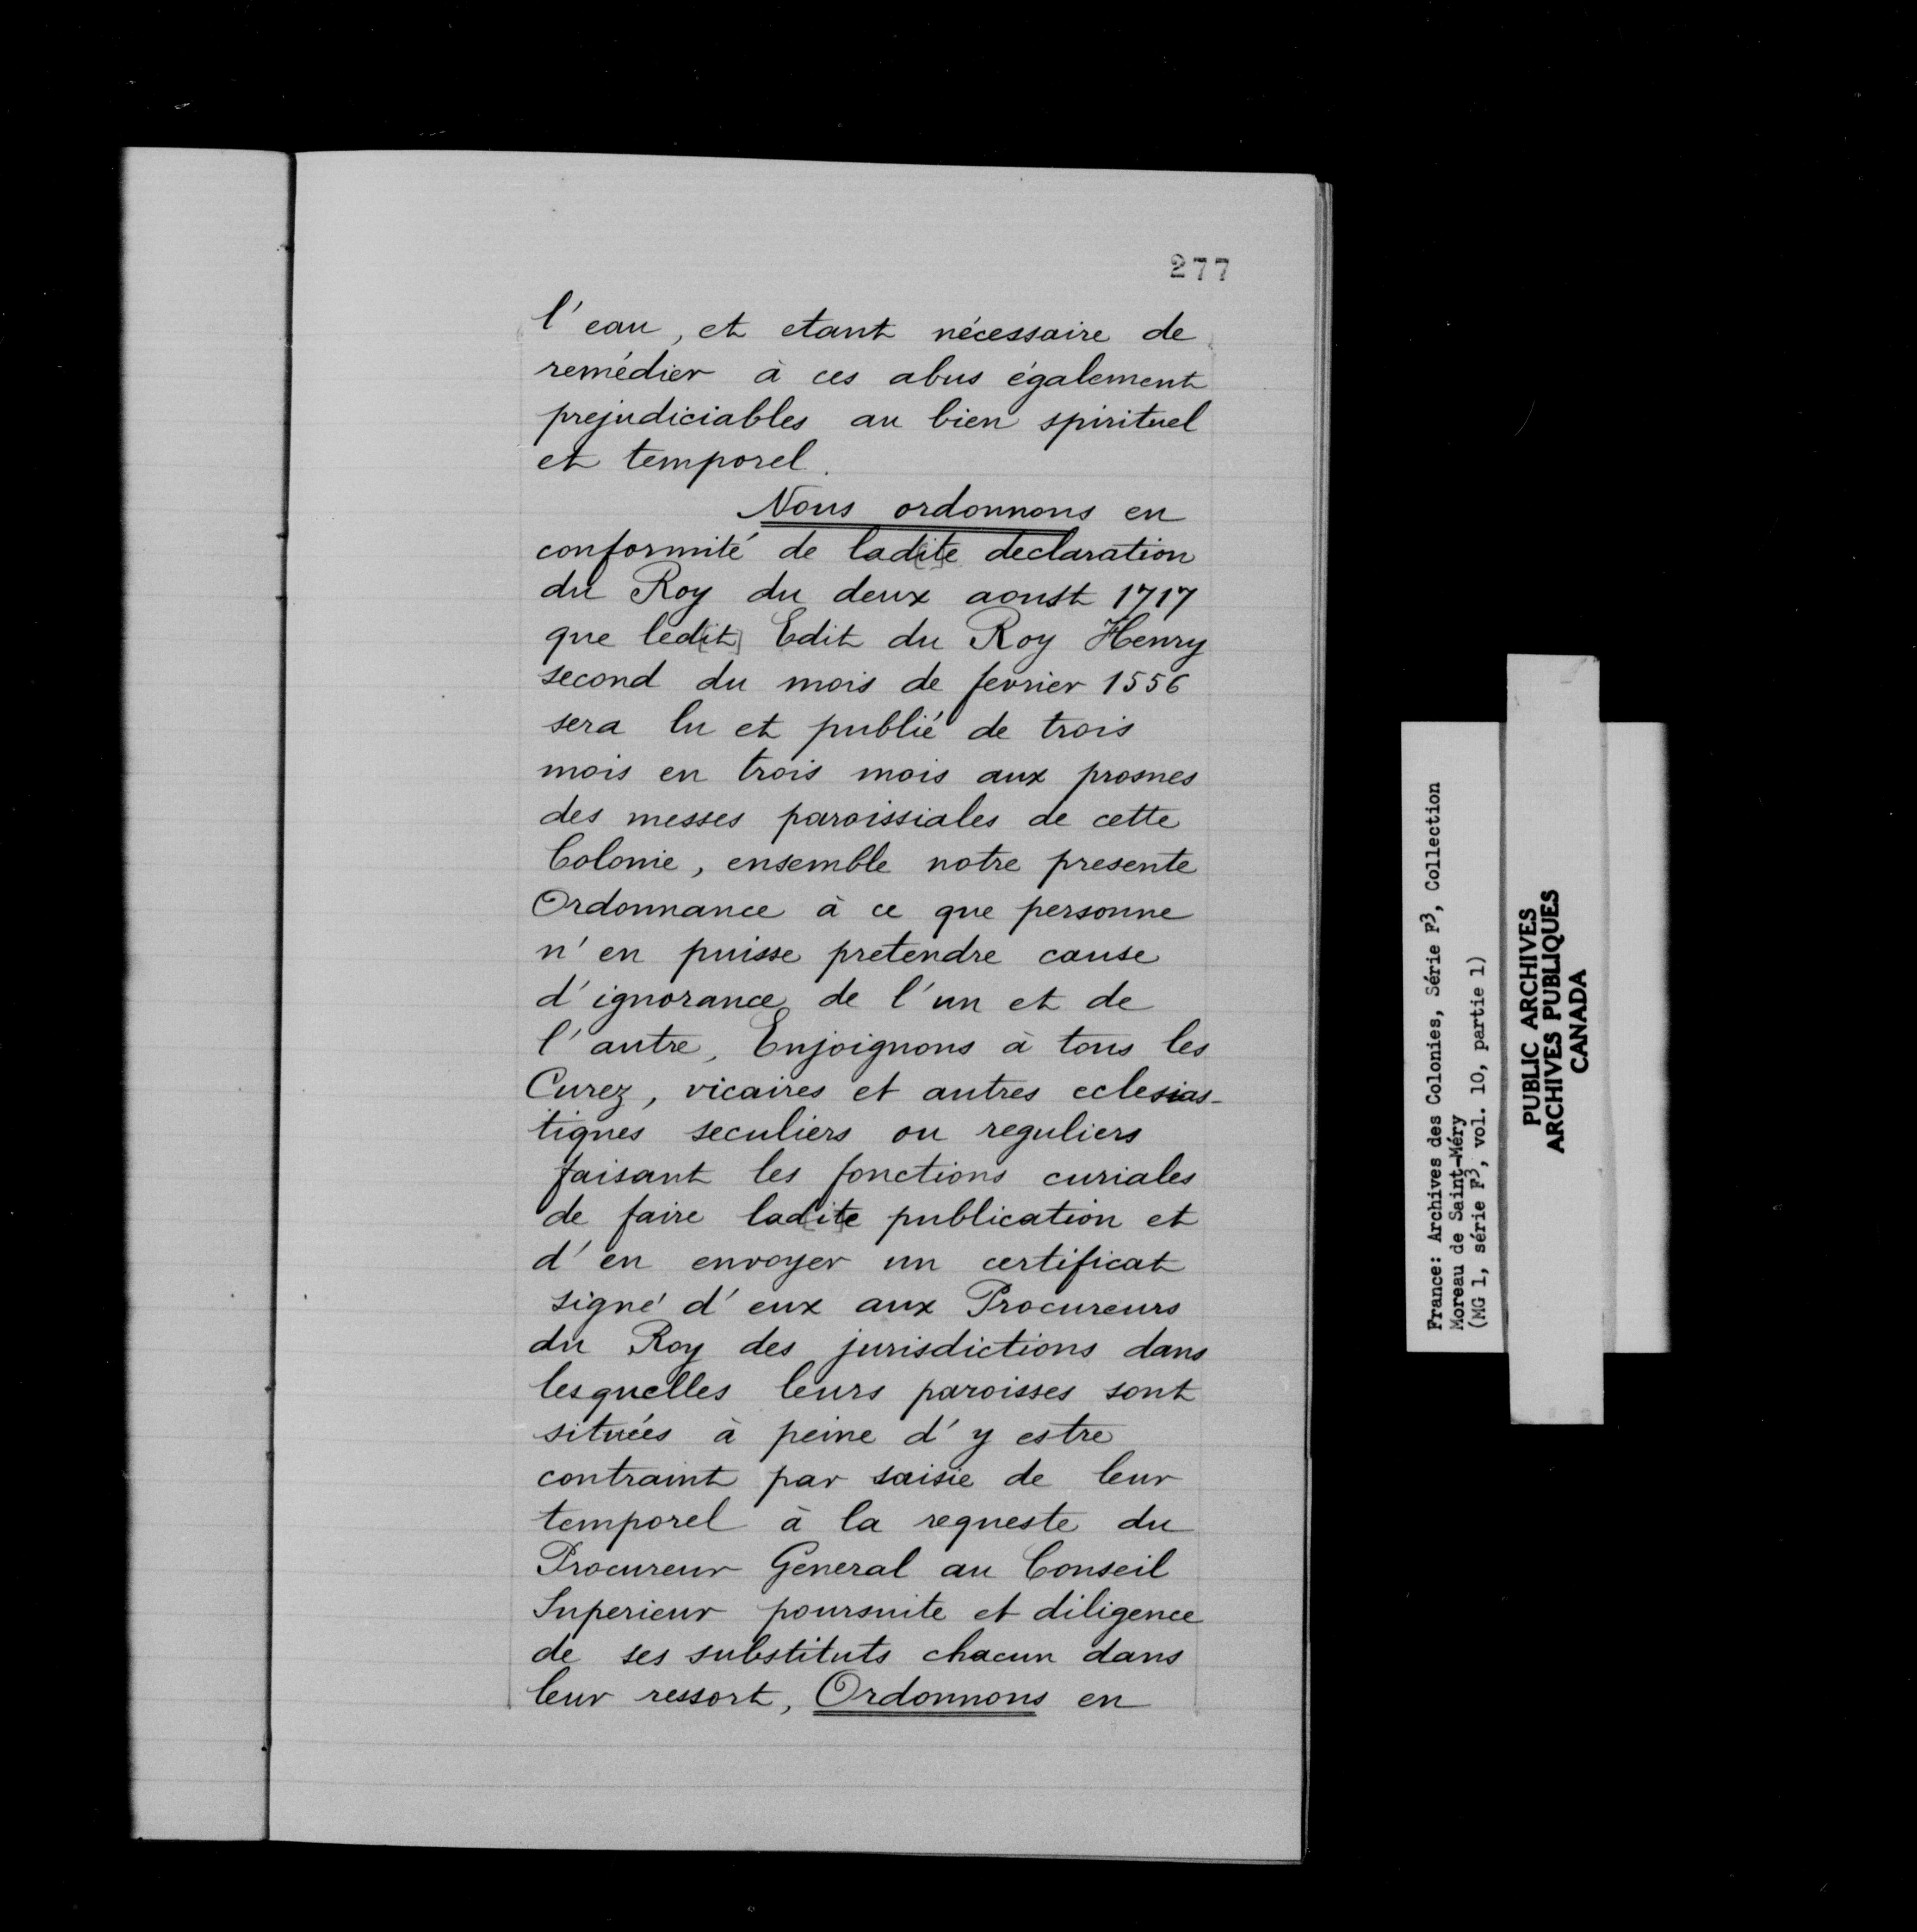 277
l'eau, et etant nécessaire de
remédier à ces abus également
prejudiciables au bien spirituel
et temporel.
Nous ordonnons en
conformité de lad[it]e declaration
du Roy du deux aoust 1717
que led[it] Edit du Roy Henry
second du mois de fevrier 1556
sera lu et publié de trois
mois en trois mois aux prosnes
des messes paroissiales de cette
Colonie, ensemble notre presente
Ordonnance à ce que personne
n'en puisse pretendre cause
d'ignorance de l'un et de
l'autre, Enjoignons à tous les
Curez, vicaires et autres eclesias-
tiques seculiers ou reguliers
faisant les fonctions curiales
de faire lad[it]e publication et
d'en envoyer un certificat
signé d'eux aux Procureurs
du Roy des jurisdictions dans
lesquelles leurs paroisses sont
situées à peine d'y estre
contraint par saisie de leur
temporel à la requeste du
Procureur General au Conseil
Superieur poursuite et diligence
de ses substituts chacun dans
leur ressort, Ordonnons en
France: Archives des Colonies, Série F3, Collection
Moreau de Saint-Méry
(MG 1, série F3, vol. 10, partie 1)
PUBLIC ARCHIVES
ARCHIVES PUBLIQUES
CANADA